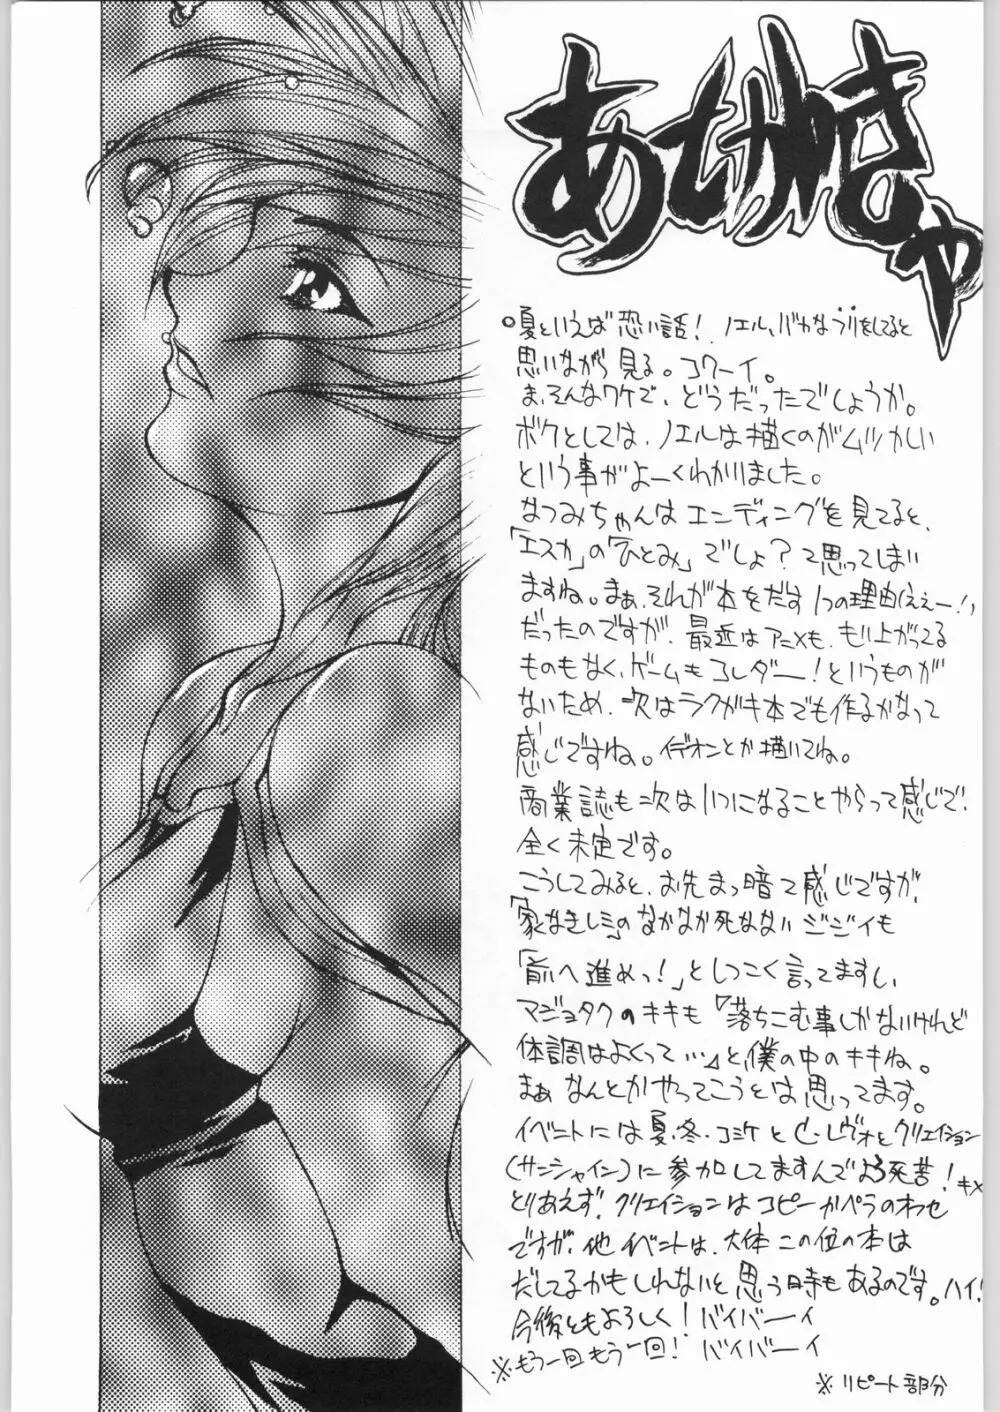 あとがきゃ
。夏といえば恐い話！ノエル、バカなフリをしてると
思いながら見る。コワーイ。
ま、そんなワケで、どうだったでしょうか。
ボクとしては、ノエルは描くのがムツかしい
という事がよーくわかりました。
なつみちゃんはエンディングを見てると、
「エスカ」の「ひとみ」でしょ？て思ってしまい
ますね。まぁ、それが本をだす1つの理由(ええー!)
だったのですが、最近はアニメも、もり上がってる
ものもなく、ゲームもコレダー！というものが
ないため、次はラクガキ本でも作るかなって
感じですね。イデオンとか描いてね。
商業誌も次はいつになることやらって感じで、
全く未定です。
こうしてみると、お先まっ暗て感じですが、
「家なき子レミ」のなかなか死なないジジイも
「前へ進めっ！」としつこく言ってますし
マジョタクのキキも「落ちこむ事しかないけれど
体調はよくって…」と、僕の中のキキね。
まぁなんとかやってこうとは思ってます。
イベントには夏・冬・コミケとC・レヴォとクリエイション
(サンシャイン)に参加してますんでよろ死苦！キメ
とりあえず、クリエイションはコピーかペラのわせ
ですが、他イベントは、大体この位の本は
だしてるかもしれないと思う時もあるのです。ハイ！
今後ともよろしく！バイバーイ
※もう一回もう一回！バイバーイ
※リピート部分